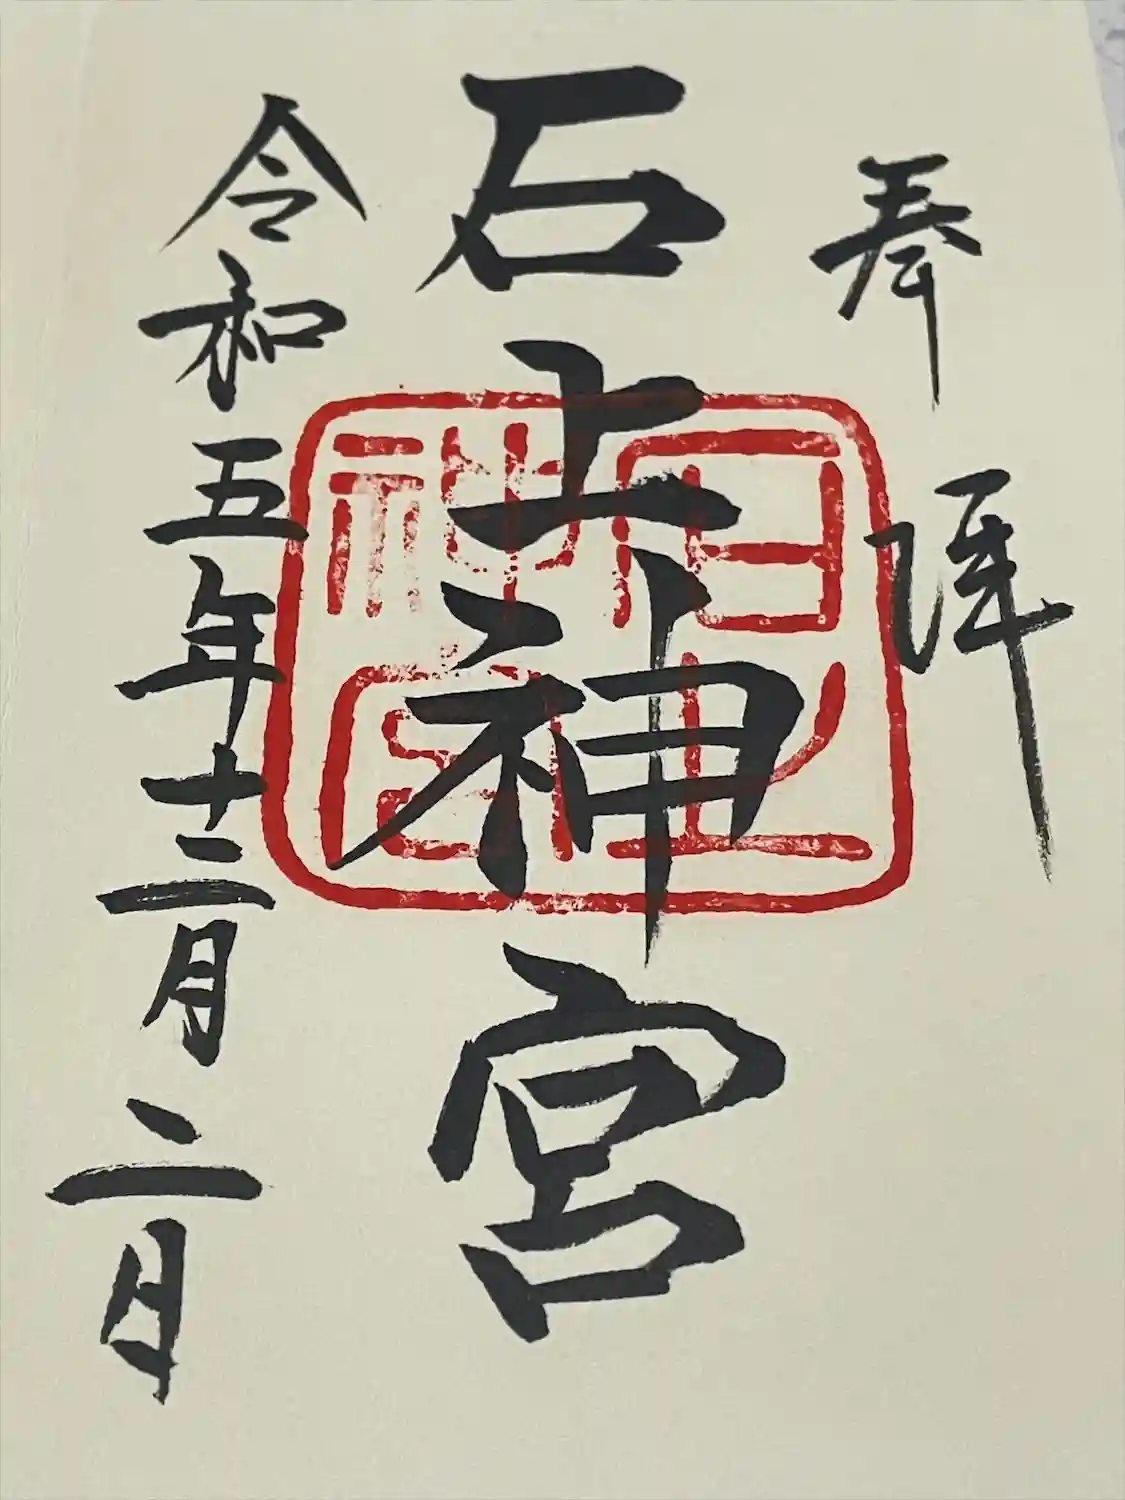 奉拝
石上神宮
石上神宮
令和五年十二月二日